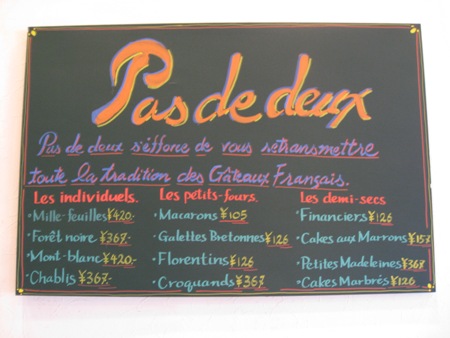 Pas de deux
Pas de deux s'éfforce de vous retransmettre
toute la tradition des Gâteaux Français.
Les individuels.
• Mille-feuilles ¥420-
• Forêt noire ¥367-
• Mont-blanc ¥420-
• Chablis ¥367-
Les petits-fours.
• Macarons ¥105
• Galettes Bretonnes ¥126
• Florentins ¥126
• Croquands ¥367
Les demi-secs
• Financiers ¥126
• Cakes aux Marrons ¥157
• Petites Madeleines ¥367
• Cakes Marbrés ¥126